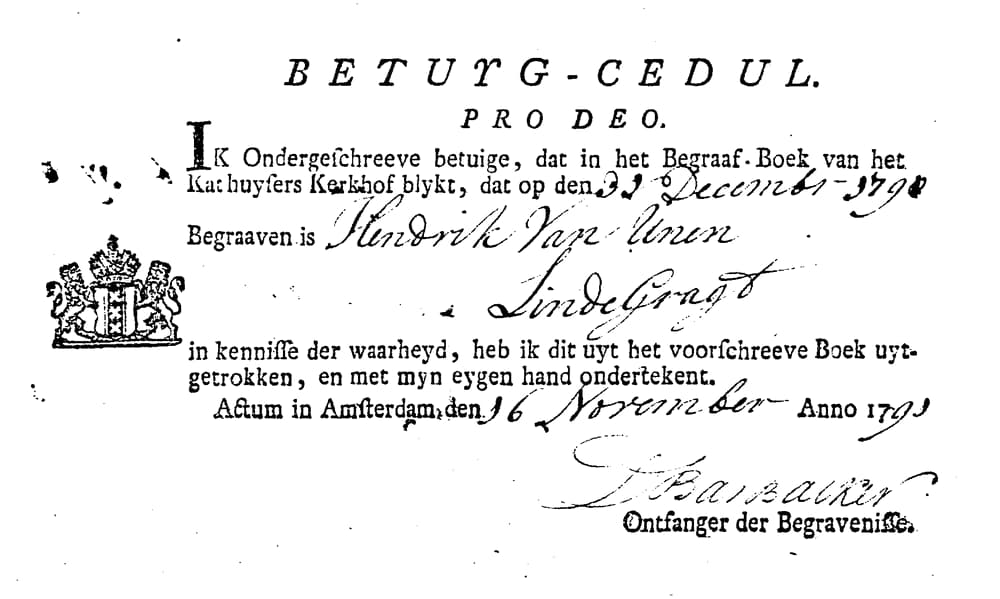 BETUYG-CEDUL.
PRO DEO.
IK Ondergeſchreeve betuige, dat in het Begraaf-Boek van het
Kathuyſers Kerkhof blykt, dat op den 31 December 179
Begraaven is Hendrik Van Unen
LindeGragt
in kenniſſe der waarheyd, heb ik dit uyt het voorſchreeve Boek uyt-
getrokken, en met myn eygen hand ondertekent.
Actum in Amſterdam, den 16 November Anno 1791
Ontfanger der Begraveniſſe.